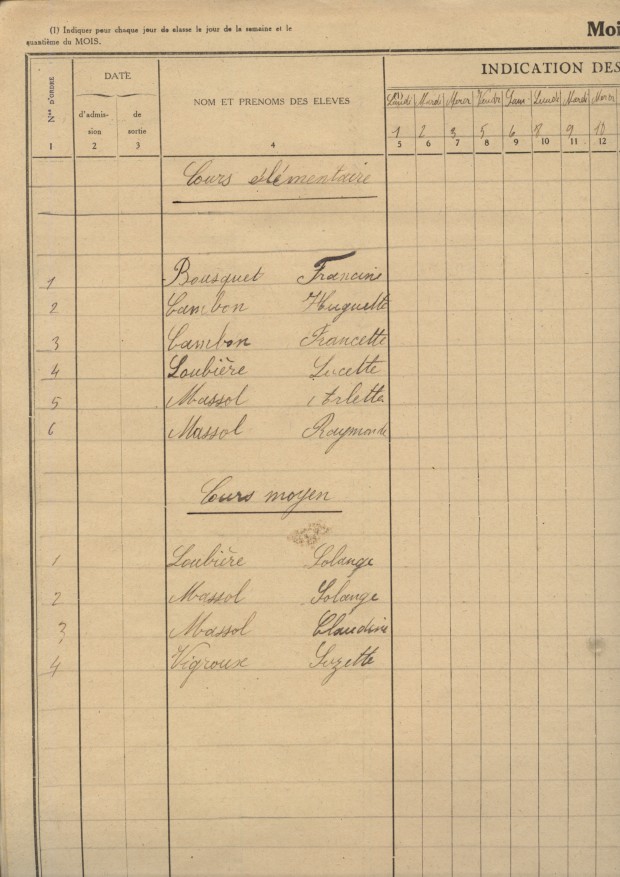 (1) Indiquer pour chaque jour de classe le jour de la semaine et le
quantième du MOIS.
Moi
Nos D'ORDRE
DATE
NOM ET PRENOMS DES ELEVES
INDICATION DES
d'admis-
sion
de
sortie
(1)
Lundi Mardi Mercr Vendr Sam Lundi Mardi Mercr
1 2 3 5 6 8 9 10
1 2 3 4 5 6 7 8 9 10 11 12
Cours élémentaire
1 Bousquet Francine
2 Cambon Huguette
3 Cambon Francette
4 Loubière Lucette
5 Massol Arlette
6 Massol Raymonde
Cours moyen
1 Loubière Solange
2 Massol Solange
3 Massol Claudine
4 Vigroux Suzette